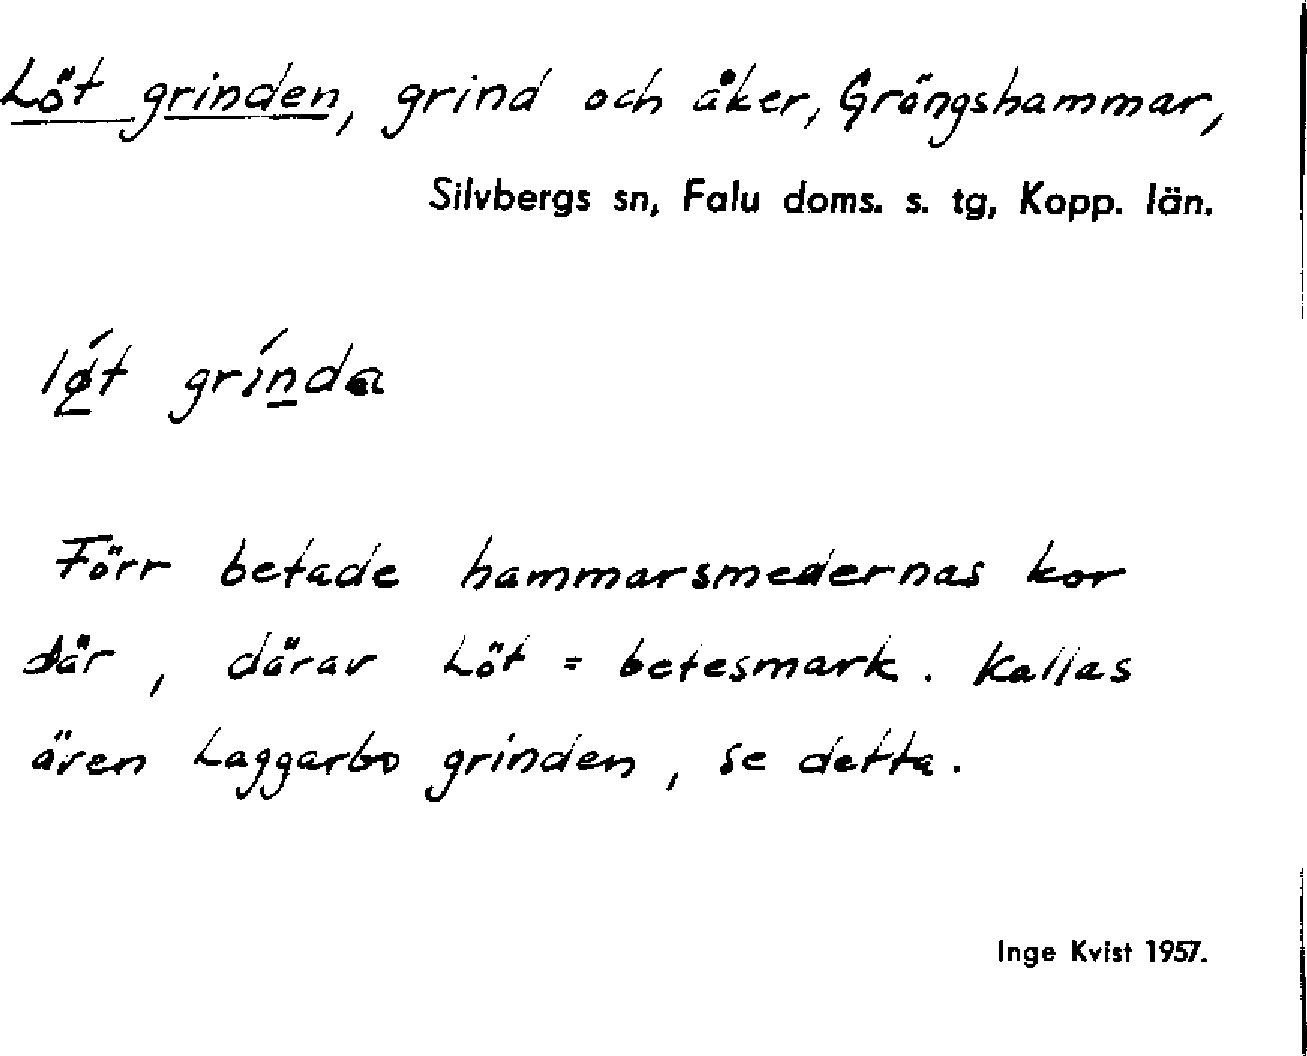 Löt grinden, grind och åker, Grängshammar,
Silvbergs sn, Falu doms. s. tg, Kopp. län.
lǿ̣t grí̱nda
Förr betade hammarsmedernas kor
där, därav Löt = betesmark. Kallas
även Laggarbo grinden, se detta.
Inge Kvist 1957.